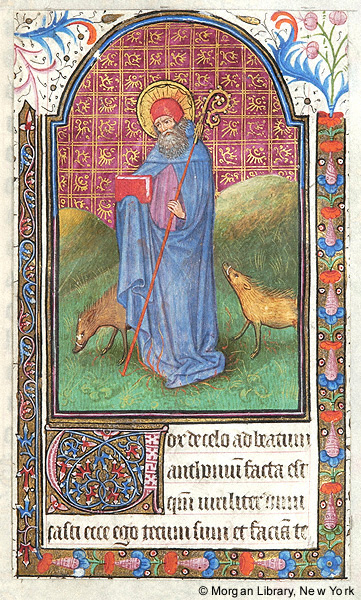 Vox de celo ad beatum
anthoniū facta est
qm̄ uiriliter dimi
casti ecce ego tecum sum et faciā te
© Morgan Library, New York